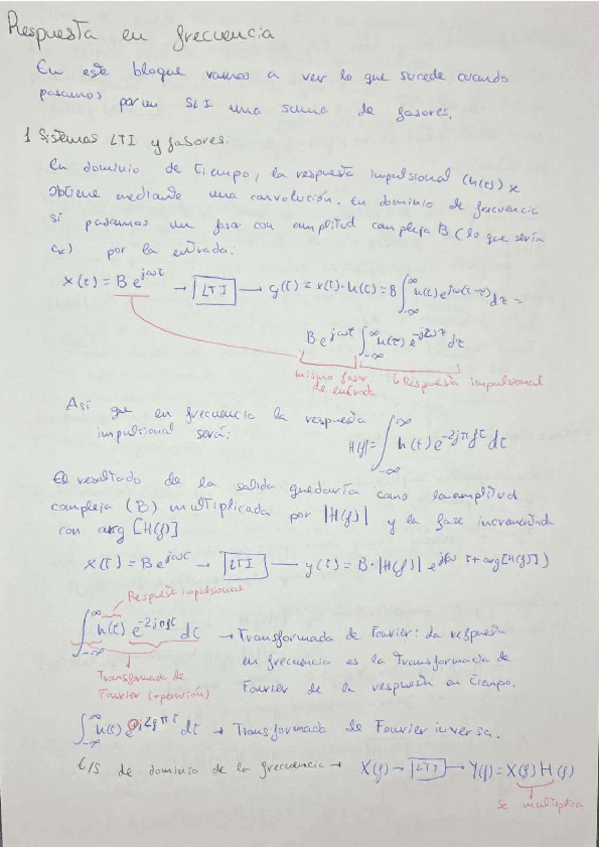 Respuesta en frecuencia
En este bloque vamos a ver lo que sucede cuando
pasamos por un SLI una suma de fasores.
1 Sistemas LTI y fasores:
En dominio de tiempo, la respuesta impulsional (h(t)) se
obtiene mediante una convolución. En dominio de frecuencia
si pasamos un fasor con amplitud compleja B (lo que sería
) por la entrada:
x(t) = B e^{jωt} → [LTI] → y(t) = x(t)·h(t) = B ∫_{-∞}^{∞} h(τ) e^{jω(t-τ)} dτ =
B e^{jωt} ∫_{-∞}^{∞} h(τ) e^{-j2ωτ} dτ
mismo fasor de entrada
↳ Respuesta impulsional
Así que en frecuencia la respuesta
impulsional será:
H(f) = ∫_{-∞}^{∞} h(t) e^{-2jπft} dt
El resultado de la salida quedaría como la amplitud
compleja (B) multiplicada por |H(f)| y la fase incrementada
con arg [H(f)]
x(t) = B e^{jωt} → [LTI] → y(t) = B·|H(f)| e^{j(ωt + arg[H(f)])}
Respuesta impulsional
∫_{-∞}^{∞} h(t) e^{-2jπft} dt → Transformada de Fourier: La respuesta
en frecuencia es la Transformada de
Fourier de la respuesta en tiempo.
Transformada de
Fourier (operación)
∫_{-∞}^{∞} h(t) e^{j2fπt} dt → Transformada de Fourier inversa.
E/S de dominio de la frecuencia → X(f) → [LTI] → Y(f) = X(f) H(f)
se multiplica